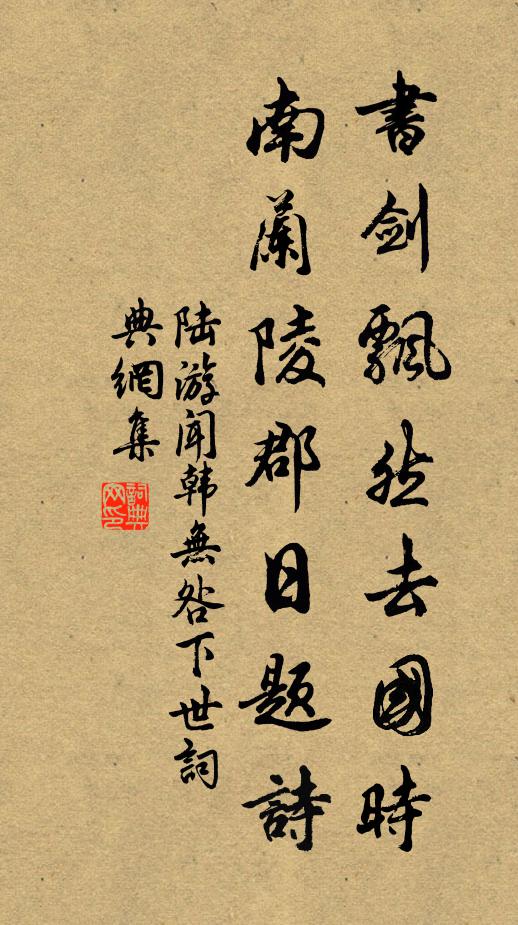 書劍飄然去國時
南蘭陵郡日題詩
陸游闻韩無咎下世詞
典網集
詞典网印